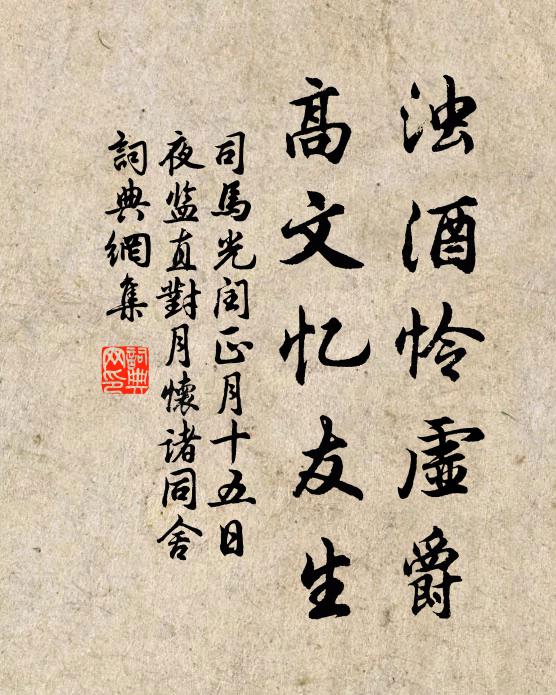 浊酒怜虚爵
高文忆友生
司馬光闰正月十五日
夜监直對月懷诸同舍
詞典網集
詞典
网印